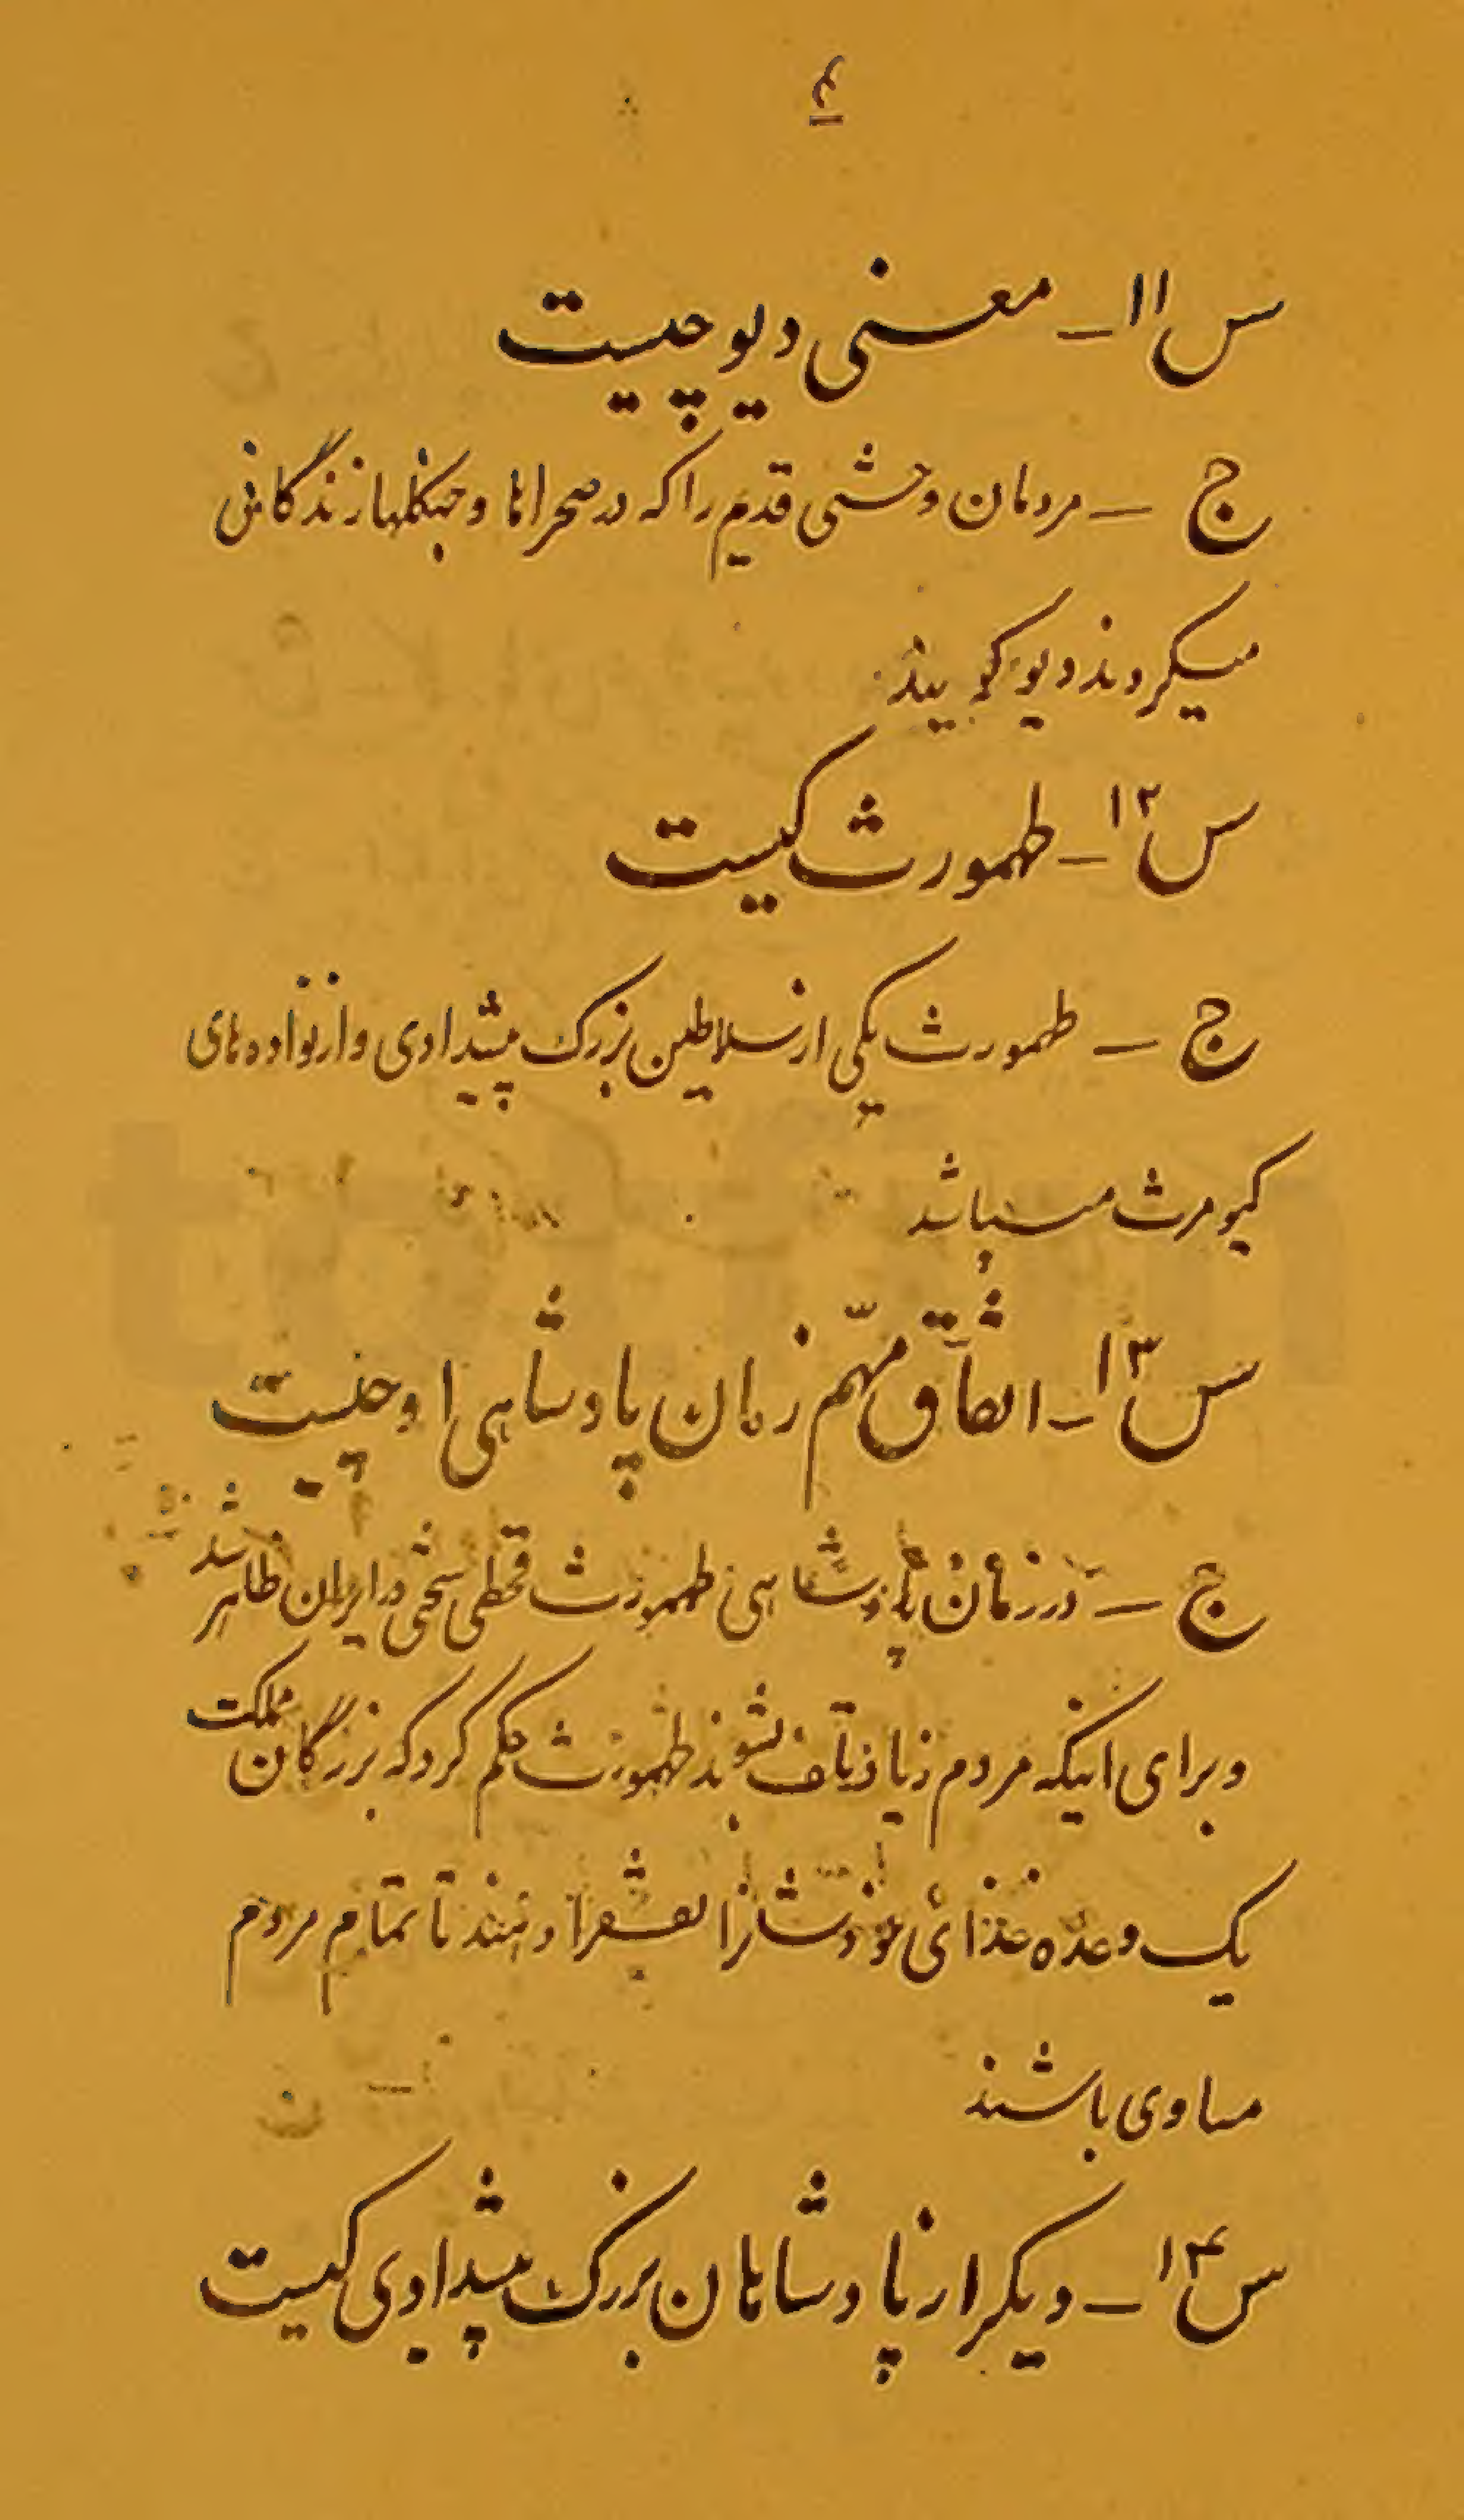 ٤
س ۱۱ ـ معنی دیو چیست
ج ـ مردمان وحشی قدیم را که در صحراها و جنکلها زندگانی
میکردند دیو کویند
س ۱۲ ـ طهمورث کیست
ج ـ طهمورث یکی از سلاطین بزرک پیشدادی و از نواده های
کیومرث میباشد
س ۱۳ ـ اتفاق مهّم زمان پادشاهی او چیست
ج ـ در زمان پادشاهی طهمورث قحطی سختی در ایران ظاهر شد
و برای اینکه مردم زیاد تلف نشوند طهمورث حکم کرد که بزرگان مملکت
یک وعدّه غذای خودشانرا بفقرا دهند تا تمام مردم
مساوی باشند
س ۱۴ ـ دیکر از پادشاهان بزرک پیشدادی کیست